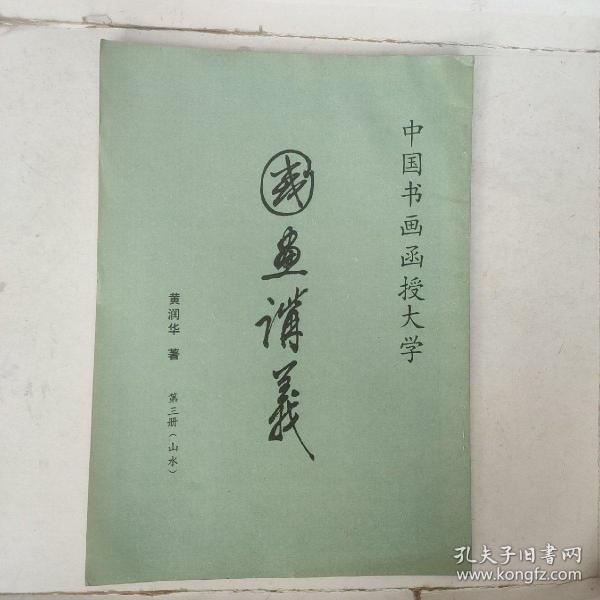 中国书画函授大学
國畫講義
黄润华 著
第三册(山水)
孔夫子旧书网
www.kongfz.com